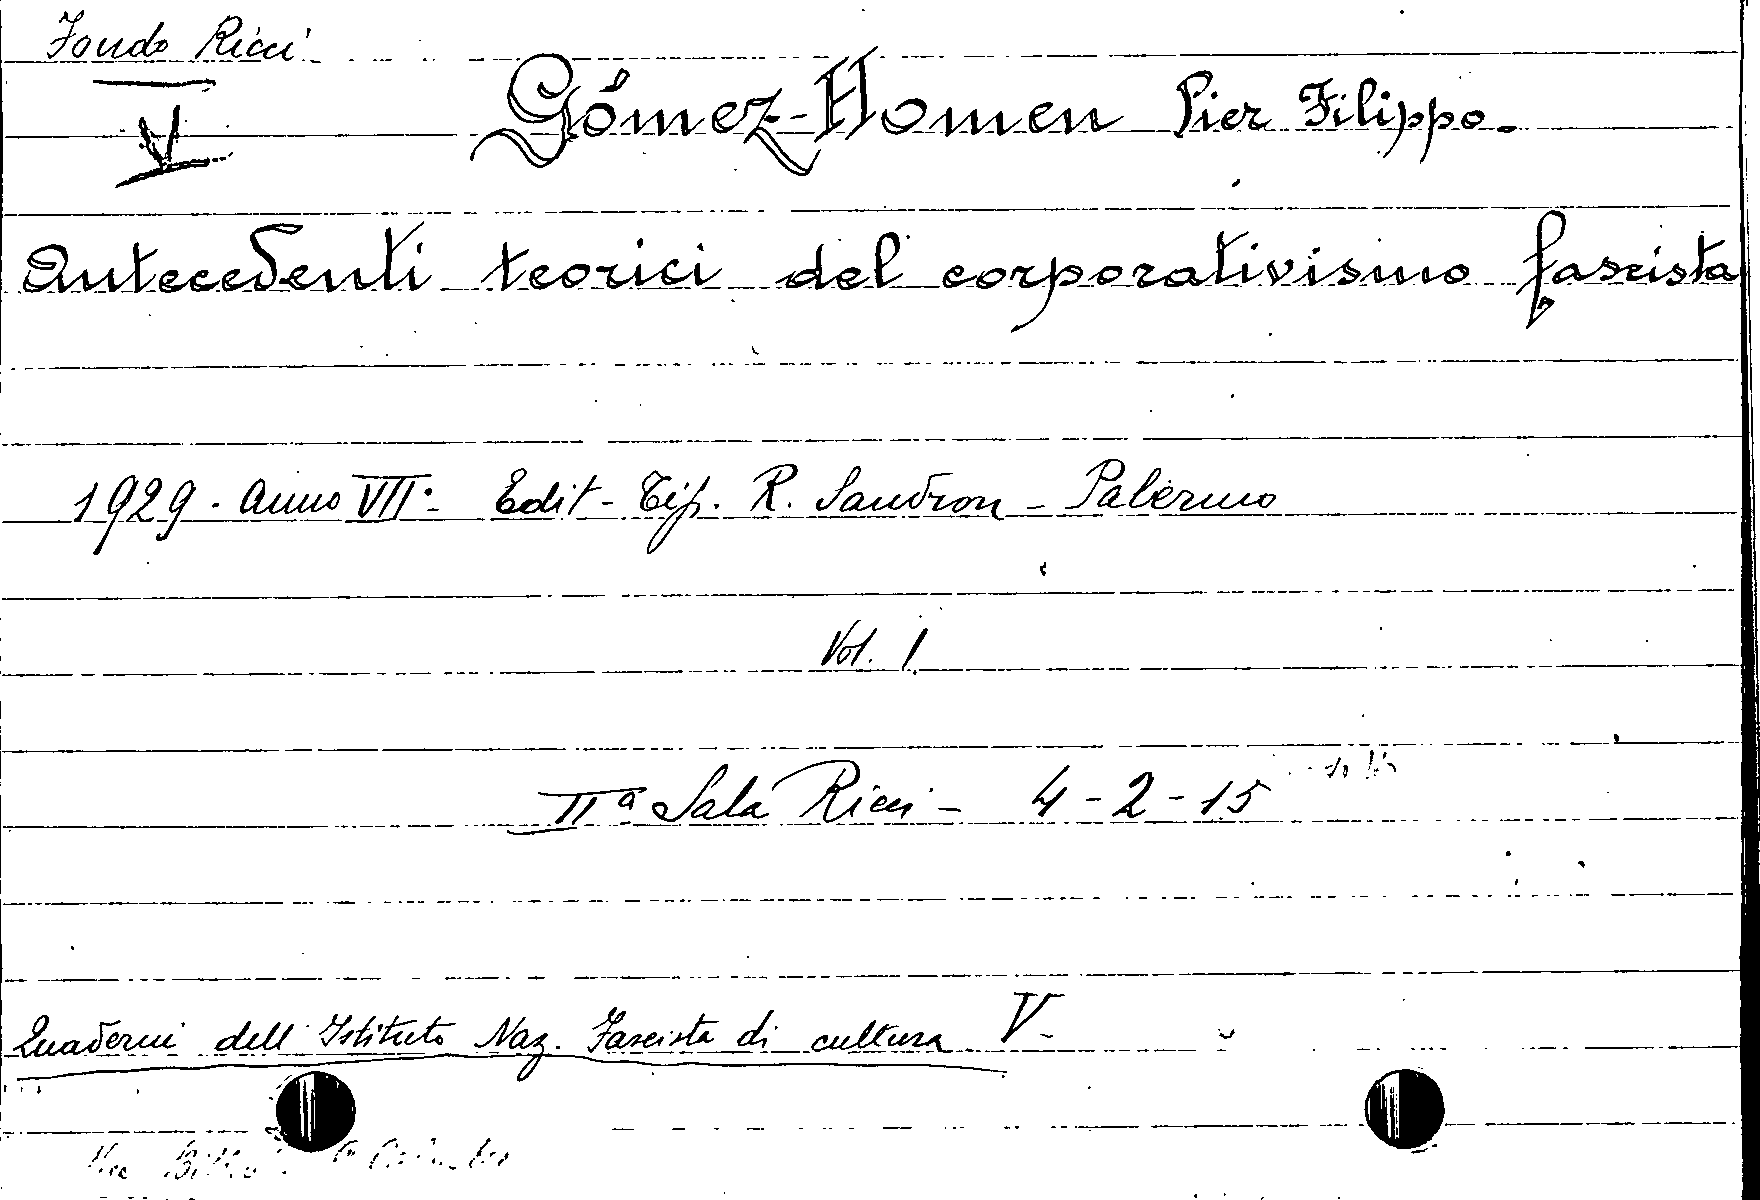 Fondo Ricci
V
Gómez-Homen Pier Filippo.
Antecedenti teorici del corporativismo fascista
1929. Anno VII. Edit - Tip. R. Sandron - Palermo
Vol. 1
IIª Sala Ricci - 4-2-15
Quaderni dell'Istituto Naz. Fascista di cultura V-